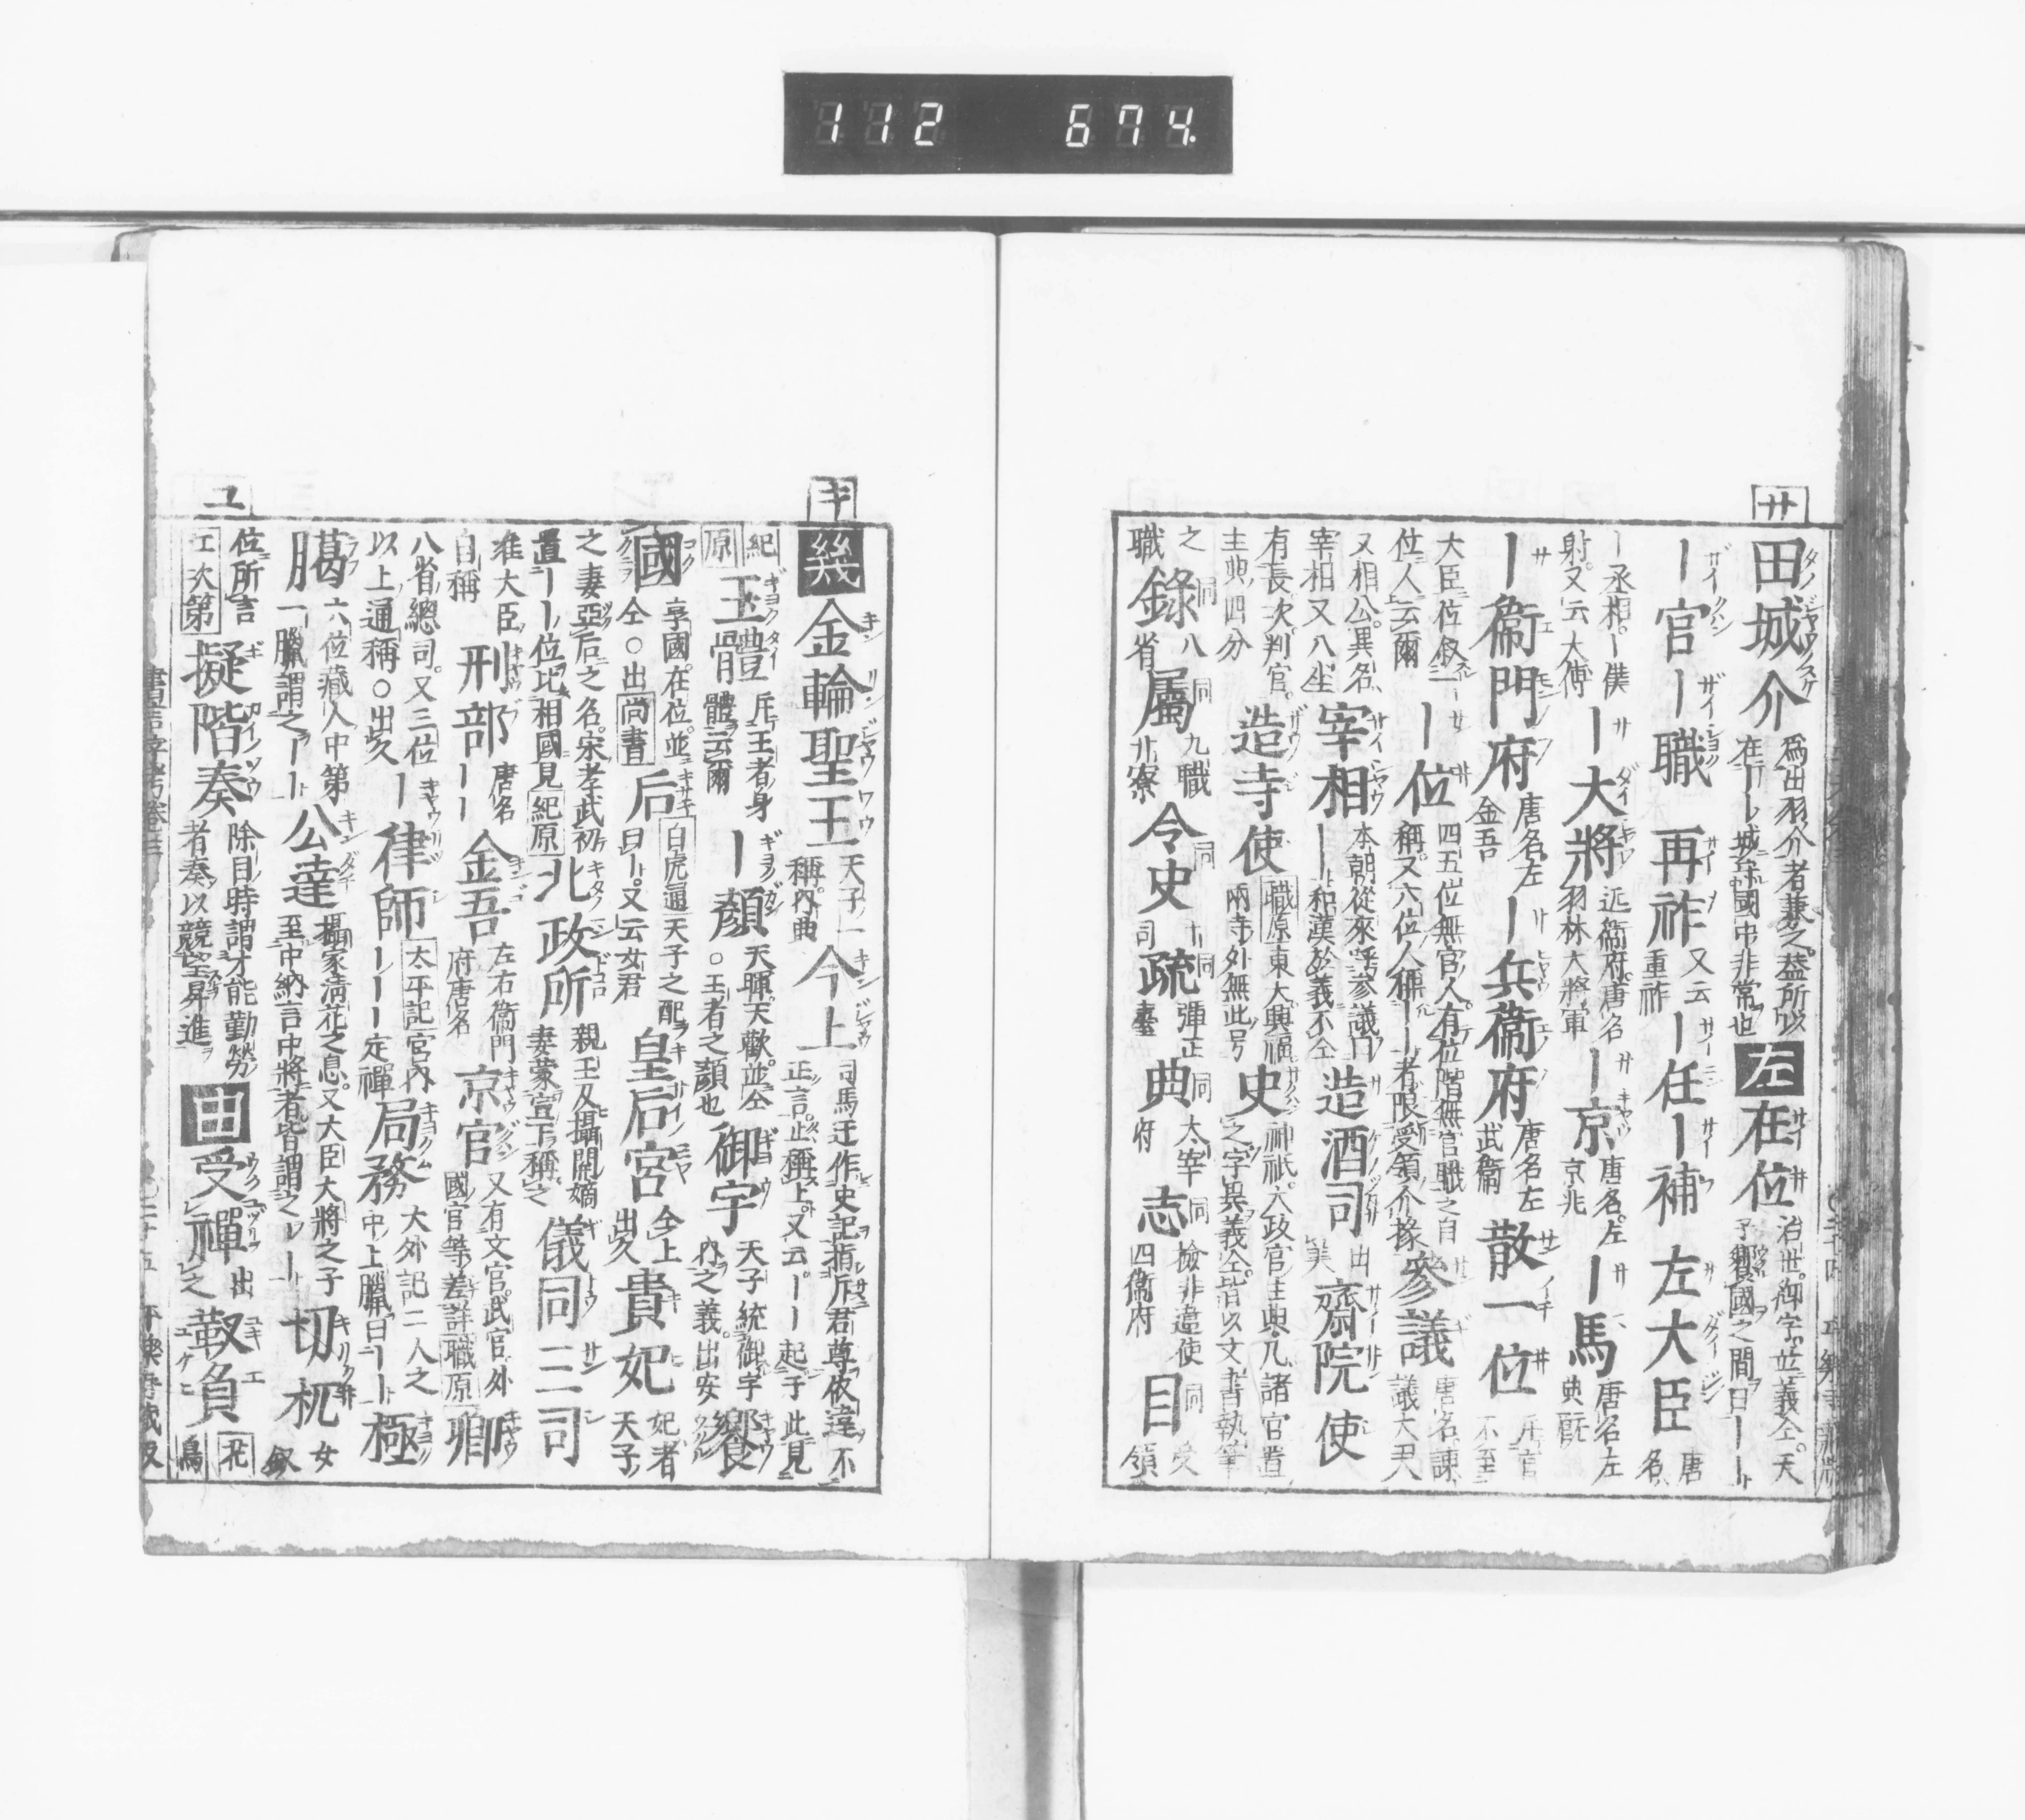 112 674
サ
田城介 為出羽介者兼之蓋所以
在｜｜城奈國中非常也
左 在位 治世御宇並義仝天
子饗國之間曰｜｜
｜官 ｜職 再祚 又云
重祚 ｜任 ｜補 左大臣 唐
名
｜丞相｜僕
射又云大傅 ｜大將 近衞府唐名
羽林大將軍 ｜京 唐名左
京兆 ｜馬 唐名左
典厩
｜衞門府 唐名左
金吾 ｜兵衞府 唐名左
武衞 散一位 斥官
不至
大臣位叙一
位人云爾 ｜位 四五位無官人有位階無官職之自
稱又六位人稱｜者限受領介掾 參議 唐名諫
議大夫
又相公異名
宰相又八坐 宰相 本朝從來呼參議曰
｜和漢於義不仝 造酒司 齋院使 出
有長次判官
主典四分 造寺使 職原東大興福
兩寺外無此号 史 神祇六政官主典凡諸官置
之字異義仝皆以文書執筆
之
職 錄 同八
省 屬 同九職
廿寮 令史 同十
司 疏 同彈正
臺 典 同大宰
府 志 同檢非違使
四衞府 目 同受
領
キ
幾 金輪聖王 天子｜
稱内典 今上 司馬迁作史記指斥君尊依違不
正言止稱上又云｜｜起于此見
紀
原 玉體 斥王者身
體云爾 ｜顏 天暉天歡並仝
○王者之顏也 御宇 天子統御宇
内之義出安 饗
國 享國在位並
仝○出尚書 后 白虎通天子之配
曰｜又云女君 皇后宮 仝上
出處 貴妃 妃者
天子
之妻亞后之名宋孝武初
置｜｜位比相國見紀原 北政所 親王及攝關嫡
妻蒙宣下稱之 儀同三司
准大臣
自稱 刑部 唐名
｜｜ 金吾 左右衞門
府唐名 京官 又有文官武官外
國官等差詳職原 卿
八省總司又三位
以上通稱○出處 ｜律師 太平記宮内
｜｜｜定禪 局務 大外記二人之
中上臈曰｜｜ 極
臈 六位藏人中第
一臈謂之｜｜ 公達 攝家淸花之息又大臣大將之子
至中納言中將者皆謂之｜｜ 切机 女
叙
位所言
江次第 擬階奏 除目時謂才能勤勞
者奏以競望昇進
由 受禪 出
之 靫負 花
鳥
ユ